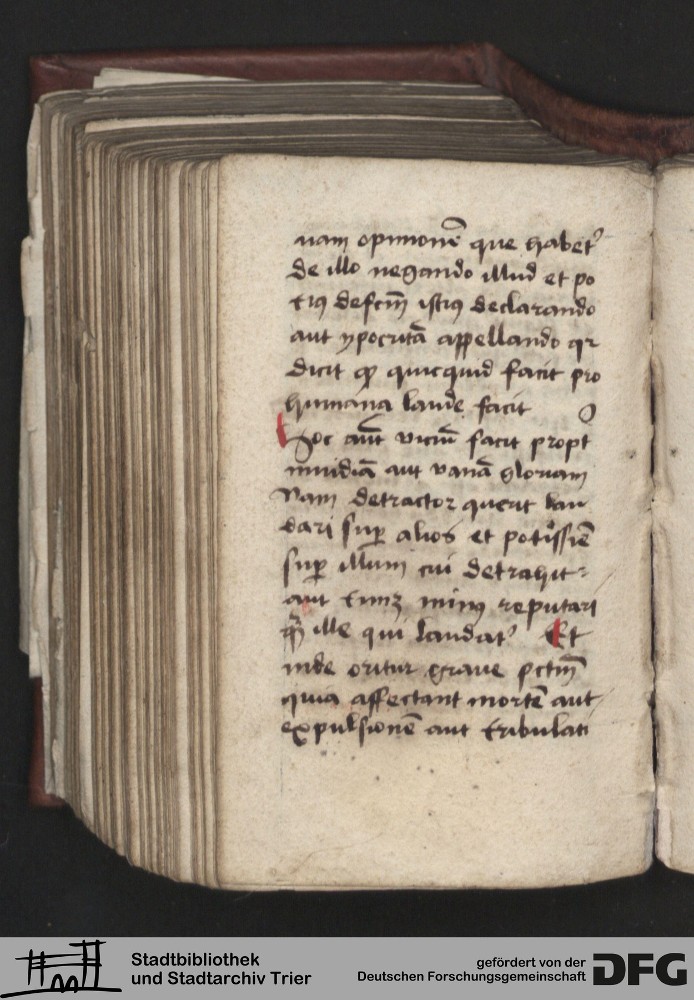 nam opinionē que habet᷒
de illo negando illud et po
tiꝯ defcm̄ istiꝯ declarando
aut ypocritā appellando qr
dicit ꝙ quicquid facit pro
humana laude facit
Hoc aūt viciū facit propt
inuidiā aut vanā gloriam
Nam detractor querit lau
dari suꝑ alios et potissie̅
suꝑ illum cui detrahit᷒
aut timꝫ minꝯ reputari
ille qui laudat᷒ Et
inde oritur graue pctm̄
quia affectant mortē aut
expulsionē aut tribulati
Stadtbibliothek
und Stadtarchiv Trier
gefördert von der
Deutschen Forschungsgemeinschaft
DFG